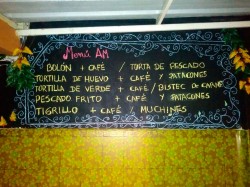 Menú AM
BOLÓN + CAFÉ / TORTA DE PESCADO
TORTILLA DE HUEVO + CAFÉ Y PATACONES
TORTILLA DE VERDE + CAFÉ / BISTEC DE CARNE
PESCADO FRITO + CAFÉ Y PATACONES
TIGRILLO + CAFÉ / MUCHINES